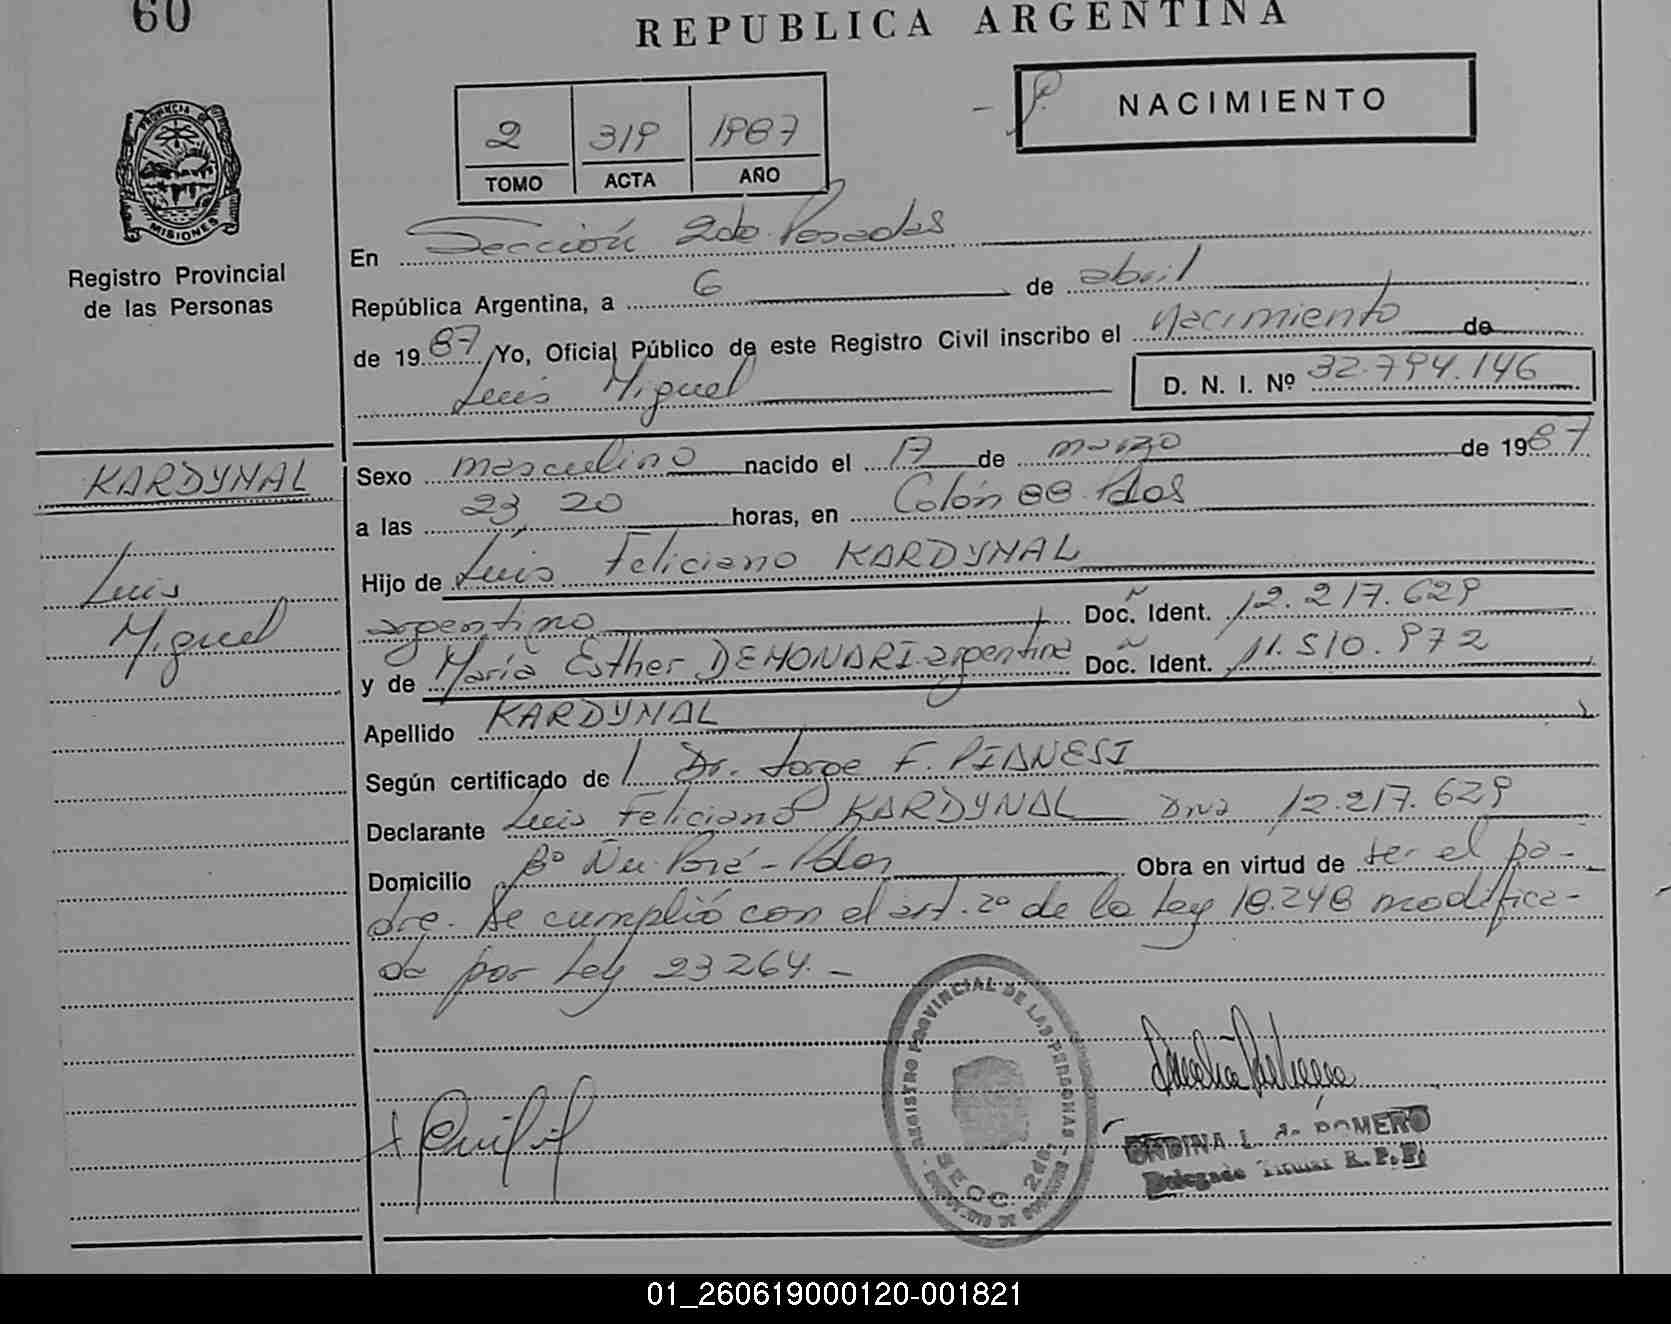 60
REPUBLICA ARGENTINA
2 319 1987
TOMO ACTA AÑO
NACIMIENTO
PROVINCIA DE
MISIONES
Registro Provincial
de las Personas
En Sección 2da. Posadas
República Argentina, a 6 de abril
de 1987 Yo, Oficial Público de este Registro Civil inscribo el Nacimiento de
Luis Miguel D. N. I. Nº 32.794.146
KARDYNAL
Luis
Miguel
Sexo masculino nacido el 17 de marzo de 1987
a las 23,20 horas, en Colón Pdas
Hijo de Luis Feliciano KARDYNAL
argentino Doc. Ident. 12.217.629
y de María Esther DEMONARI argentina Doc. Ident. 11.510.972
Apellido KARDYNAL
Según certificado de Dr. Jorge F. PIANESI
Declarante Luis Feliciano KARDYNAL DNI 12.217.629
Domicilio Bº Ñu Poré - Pdas Obra en virtud de ser el pa-
dre. Se cumplió con el art. 2º de la Ley 18.248 modifica-
da por Ley 23264.-
REGISTRO PROVINCIAL DE LAS PERSONAS
SECC. 2da.
L. de ROMERO
Delegado Titular R. P. P.
01_260619000120-001821